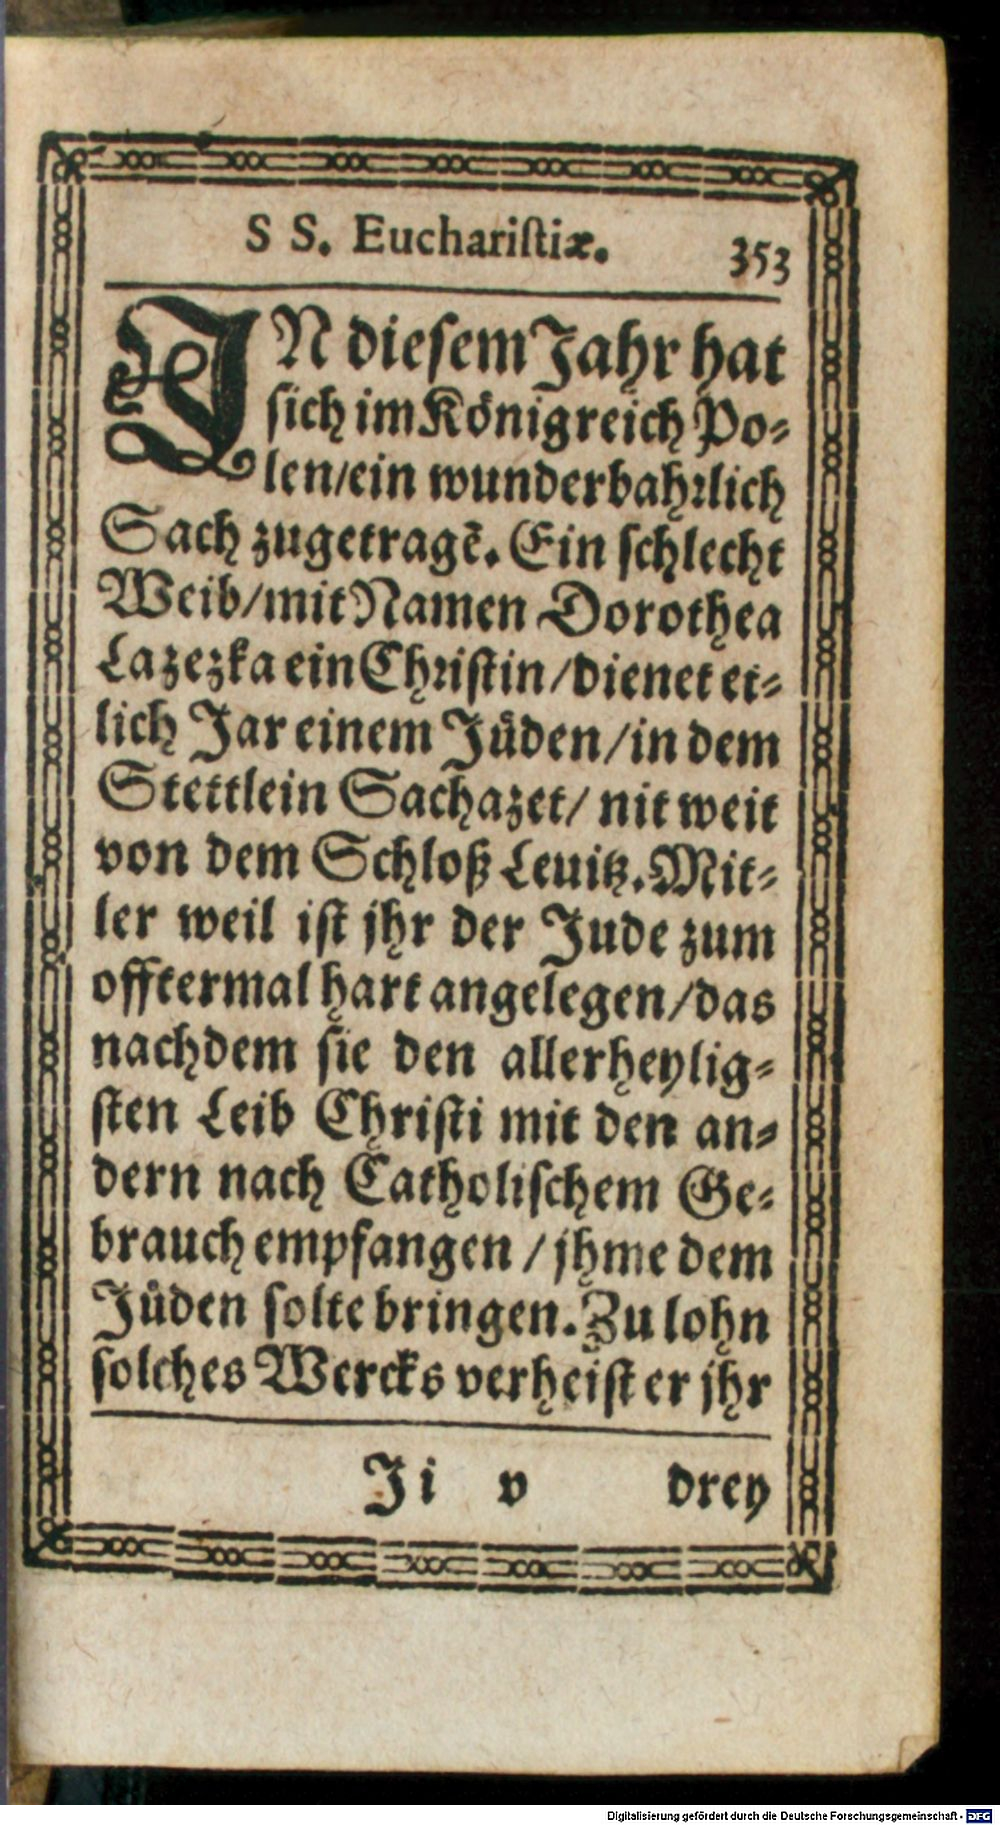 SS. Euchariſtiæ. 353
IN dieſem Jahr hat
ſich im Königreich Po⸗
len/ein wunderbahꝛlich
Sach zugetragẽ. Ein ſchlecht
Weib/mit Namen Dorothea
Lazezka ein Chꝛiſtin/dienet et⸗
lich Jar einem Jüden/in dem
Stettlein Sachazet/ nit weit
von dem Schloß Leuitz. Mit⸗
ler weil iſt jhr der Jude zum
offtermal hart angelegen/das
nachdem ſie den allerheylig⸗
ſten Leib Chriſti mit den an⸗
dern nach Catholiſchem Ge⸗
brauch empfangen / jhme dem
Jüden ſolte bringen. Zu lohn
ſolches Wercks verheiſt er jhr
Ji v drey
Digitalisierung gefördert durch die Deutsche Forschungsgemeinschaft - DFG